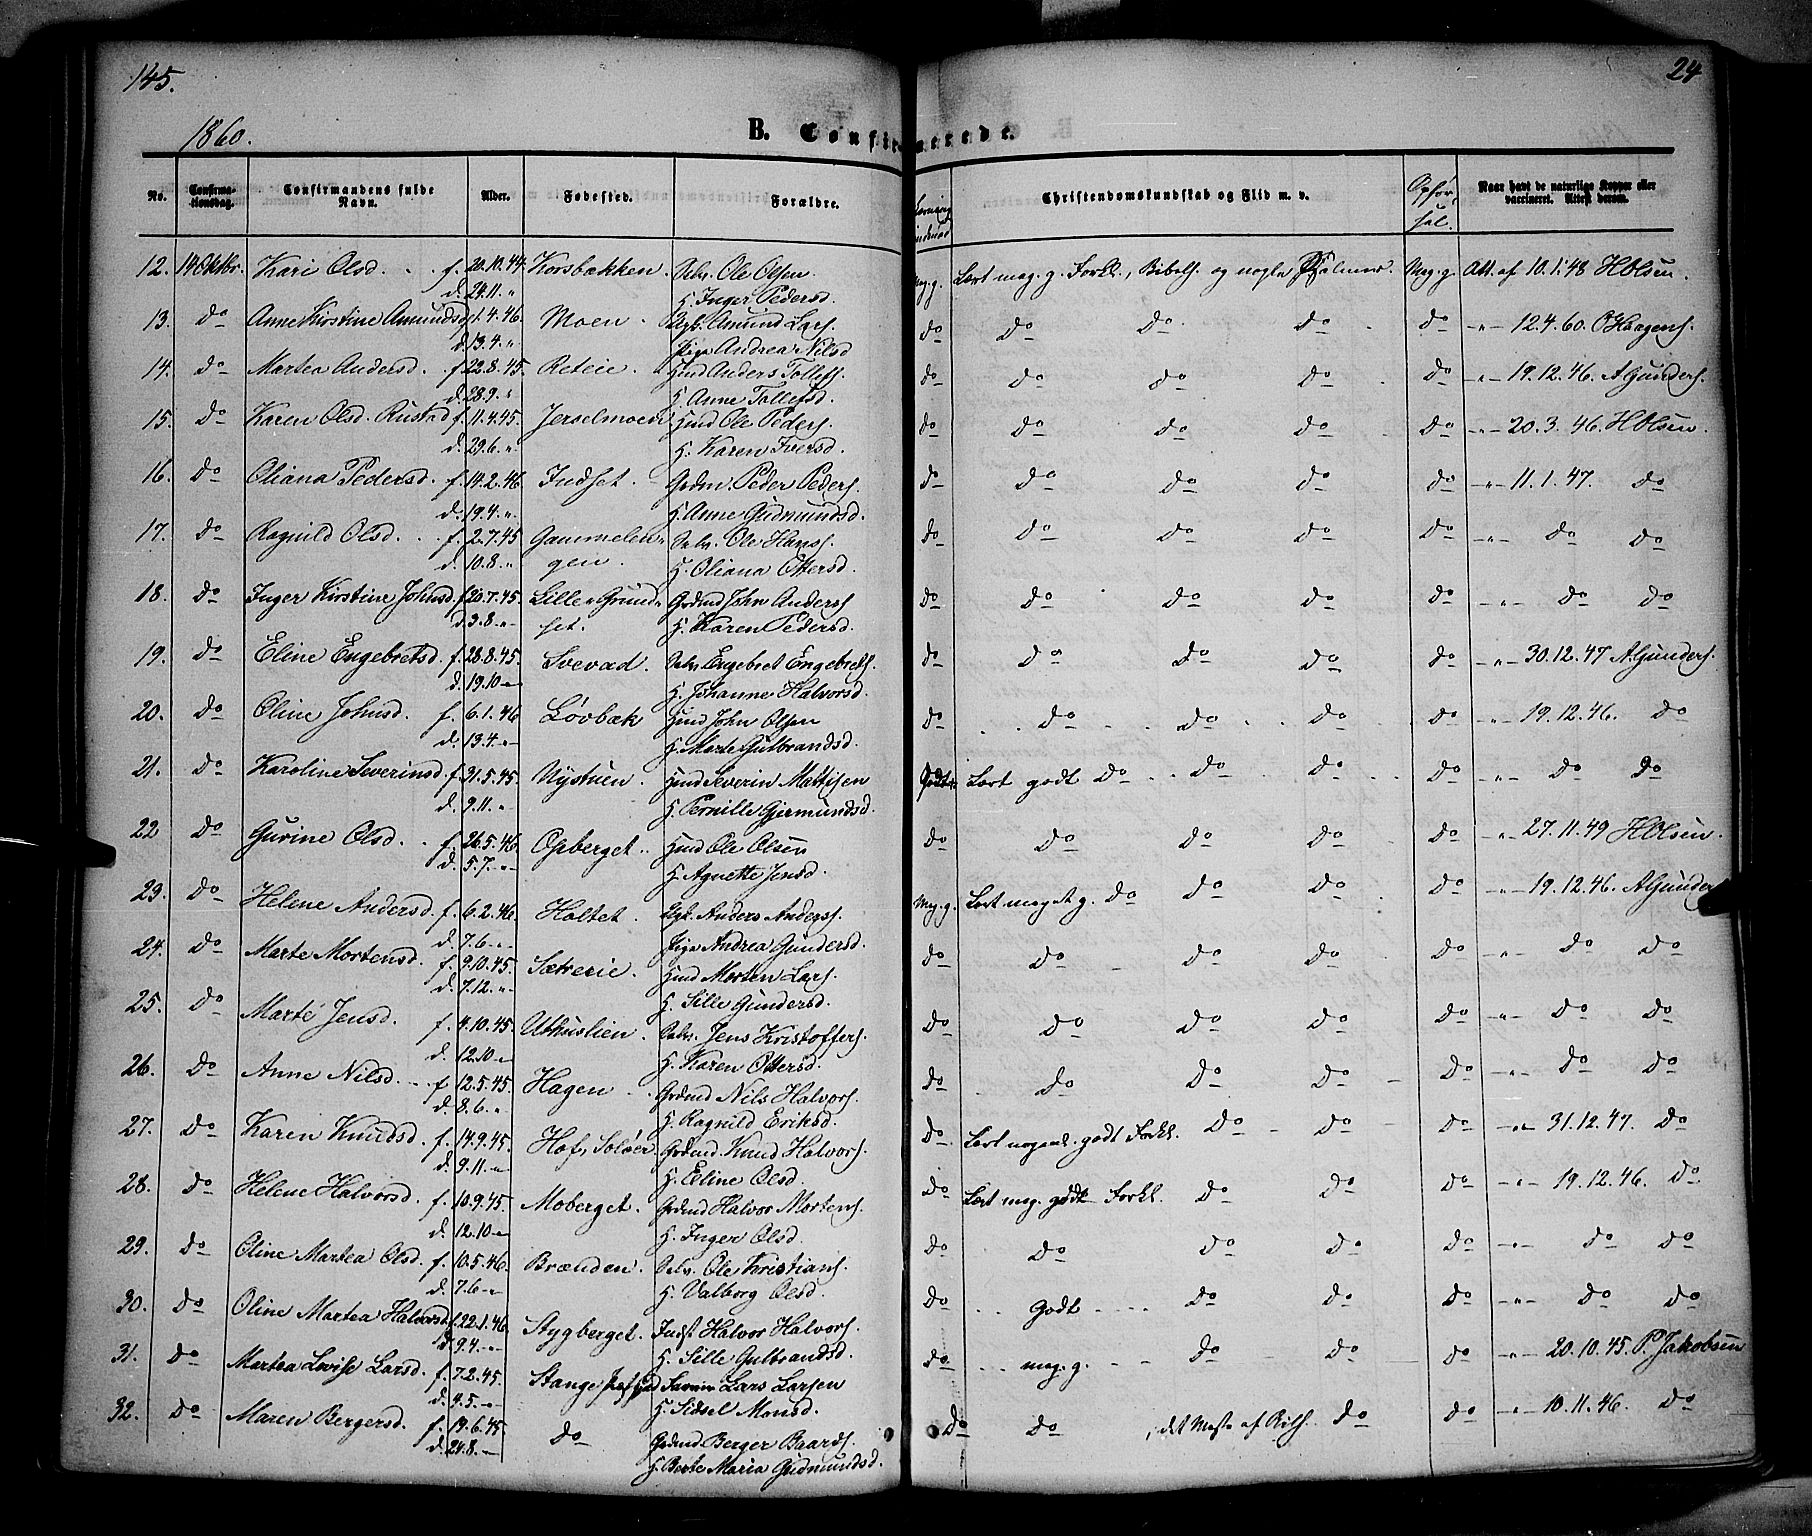 145.
24
1860.
B. Confirmerede.
No. Confirma-tionsdag. Confirmandens fulde Navn. Alder. Fødested. Forældre. Christendomskundskab og Flid m. v. Opførsel. Naar havt de naturlige Kopper eller vaccineret. Attest derom.
12. 14 Oktbr. Kari Olsd. f. 20.10.44. Korsbakken. Selv. Ole Olsen. Meg. g. Lært meg. g. Forkl., Bibelh. og nogle Psalmer. Meg. g. Att. af 10.1.48 HOlsen.
d. 24.11. " H. Inger Pedersd.
13. do Anne Kirstine Amundsd. f. 1.4.46. Moen. Ugk. Amund Lars. do do do do do -"- 12.4.60. OHaagens.
d. 13.4. " Pige Andrea Nilsd
14. do Martea Andersd. f. 22.8.45. Reteie. Hmd Anders Tollefs. do do do do do -"- 19.12.46. AGunders.
d. 28.9. " H. Anne Tollefsd.
15. do Karen Olsd. Rustad f. 11.4.45. Jerselmoen Hmd Ole Peders. do do do do do -"- 20.3.46. HOlsen.
d. 29.6. " H. Karen Iversd.
16. do Oliana Pedersd. f. 14.2.46 Indset. Grdm. Peder Peders. do do do do do -"- 11.1.47. do
d. 19.4. " H. Anne Gudmundsd.
17. do Ragnild Olsd. f. 2.7.45 Gammelen- Selv. Ole Hans. do do do do do -"- do do
d. 10.8. " gen. H. Oliana Ottersd.
18. do Inger Kirstine Johnsd. f. 20.7.45. Lille-Grund- Grdmd John Anders do do do do do -"- do do
d. 3.8. " set. H. Karen Pedersd.
19. do Eline Engebretsd. f. 28.8.45. Svevad. Selv. Engebret Engebrets. do do do do do -"- 30.12.47 AGunders.
d. 19.10. " H. Johanne Halvorsd.
20. do Oline Johnsd. f. 6.1.46 Løvbæk Hmd John Olsen do do do do do -"- 19.12.46. do
d. 13.4. " H. Marte Gulbrandsd.
21. do Karoline Severinsd. f. 31.5.45 Nystuen. Hmd Severin Mattisen Godt. Lært godt do do do do -"- do do
d. 9.11. " H. Pernille Gjermundsd.
22 do Gurine Olsd. f. 26.5.46 Opberget. Hmd Ole Olsen do do do do do -"- 27.11.49 HOlsen.
d. 5.7. " H. Agnette Jensd.
23. do Helene Andersd. f. 6.2.46. Holtet. Ugk. Anders Anders. Meg. g. Lært meget g. do do do do -"- 19.12.46. AGunders
d. 7.6. " Pige Andrea Gundersd.
24. do Marte Mortensd. f. 9.10.45. Sætreeie. Hmd Morten Lars. do do do do do -"- do do
d. 7.12. " H. Sille Gundersd.
25. do Marte Jensd. f. 4.10.45. Uthuslien. Selv. Jens Kristoffers. do do do do do -"- do do
d. 12.10. " H. Karen Ottersd.
26. do Anne Nilsd. f. 12.5.45. Hagen. Grdmd Nils Halvors. do do do do do -"- do do
d. 8.6. " H. Ragnild Eriksd.
27. do Karen Knudsd. f. 14.9.45. Hof, Soløer. Grdmd Knud Halvors. do Lært nogenl. godt Forkl. do do do -"- 31.12.47. do
d. 9.11. " H. Eline Olsd.
28. do Helene Halvorsd. f. 10.9.45. Moberget. Grdmd Halvor Mortens. do Lært meg. godt Forkl. do do do -"- 19.12.46. do
d. 12.10. " H. Inger Olsd.
29. do Oline Martea Olsd. f. 10.5.46. Brænden. Selv. Ole Kristians. do do do do do -"- do do
d. 7.6. " H. Valborg Olsd.
30. do Oline Martea Halvorsd. f. 22.1.46 Stygberget. Indst Halvor Halvors. do Godt do do do -"- do do
d. 9.4. " H. Sille Gulbrandsd.
31. do Martea Lovise Larsd. f. 7.2.45. Stange Lars Larsen do meg. g. do do do -"- 20.10.45. P. Jakobsen
d. 9.5. " H. Sidsel Monsd.
32. do Maren Bergersd. f. 19.6.45 do Grdmd Berger Baards. do do , det Meste af Bibh. do do -"- 10.11.46. do
d. 24.8. " H. Berte Maria Gudmundsd.